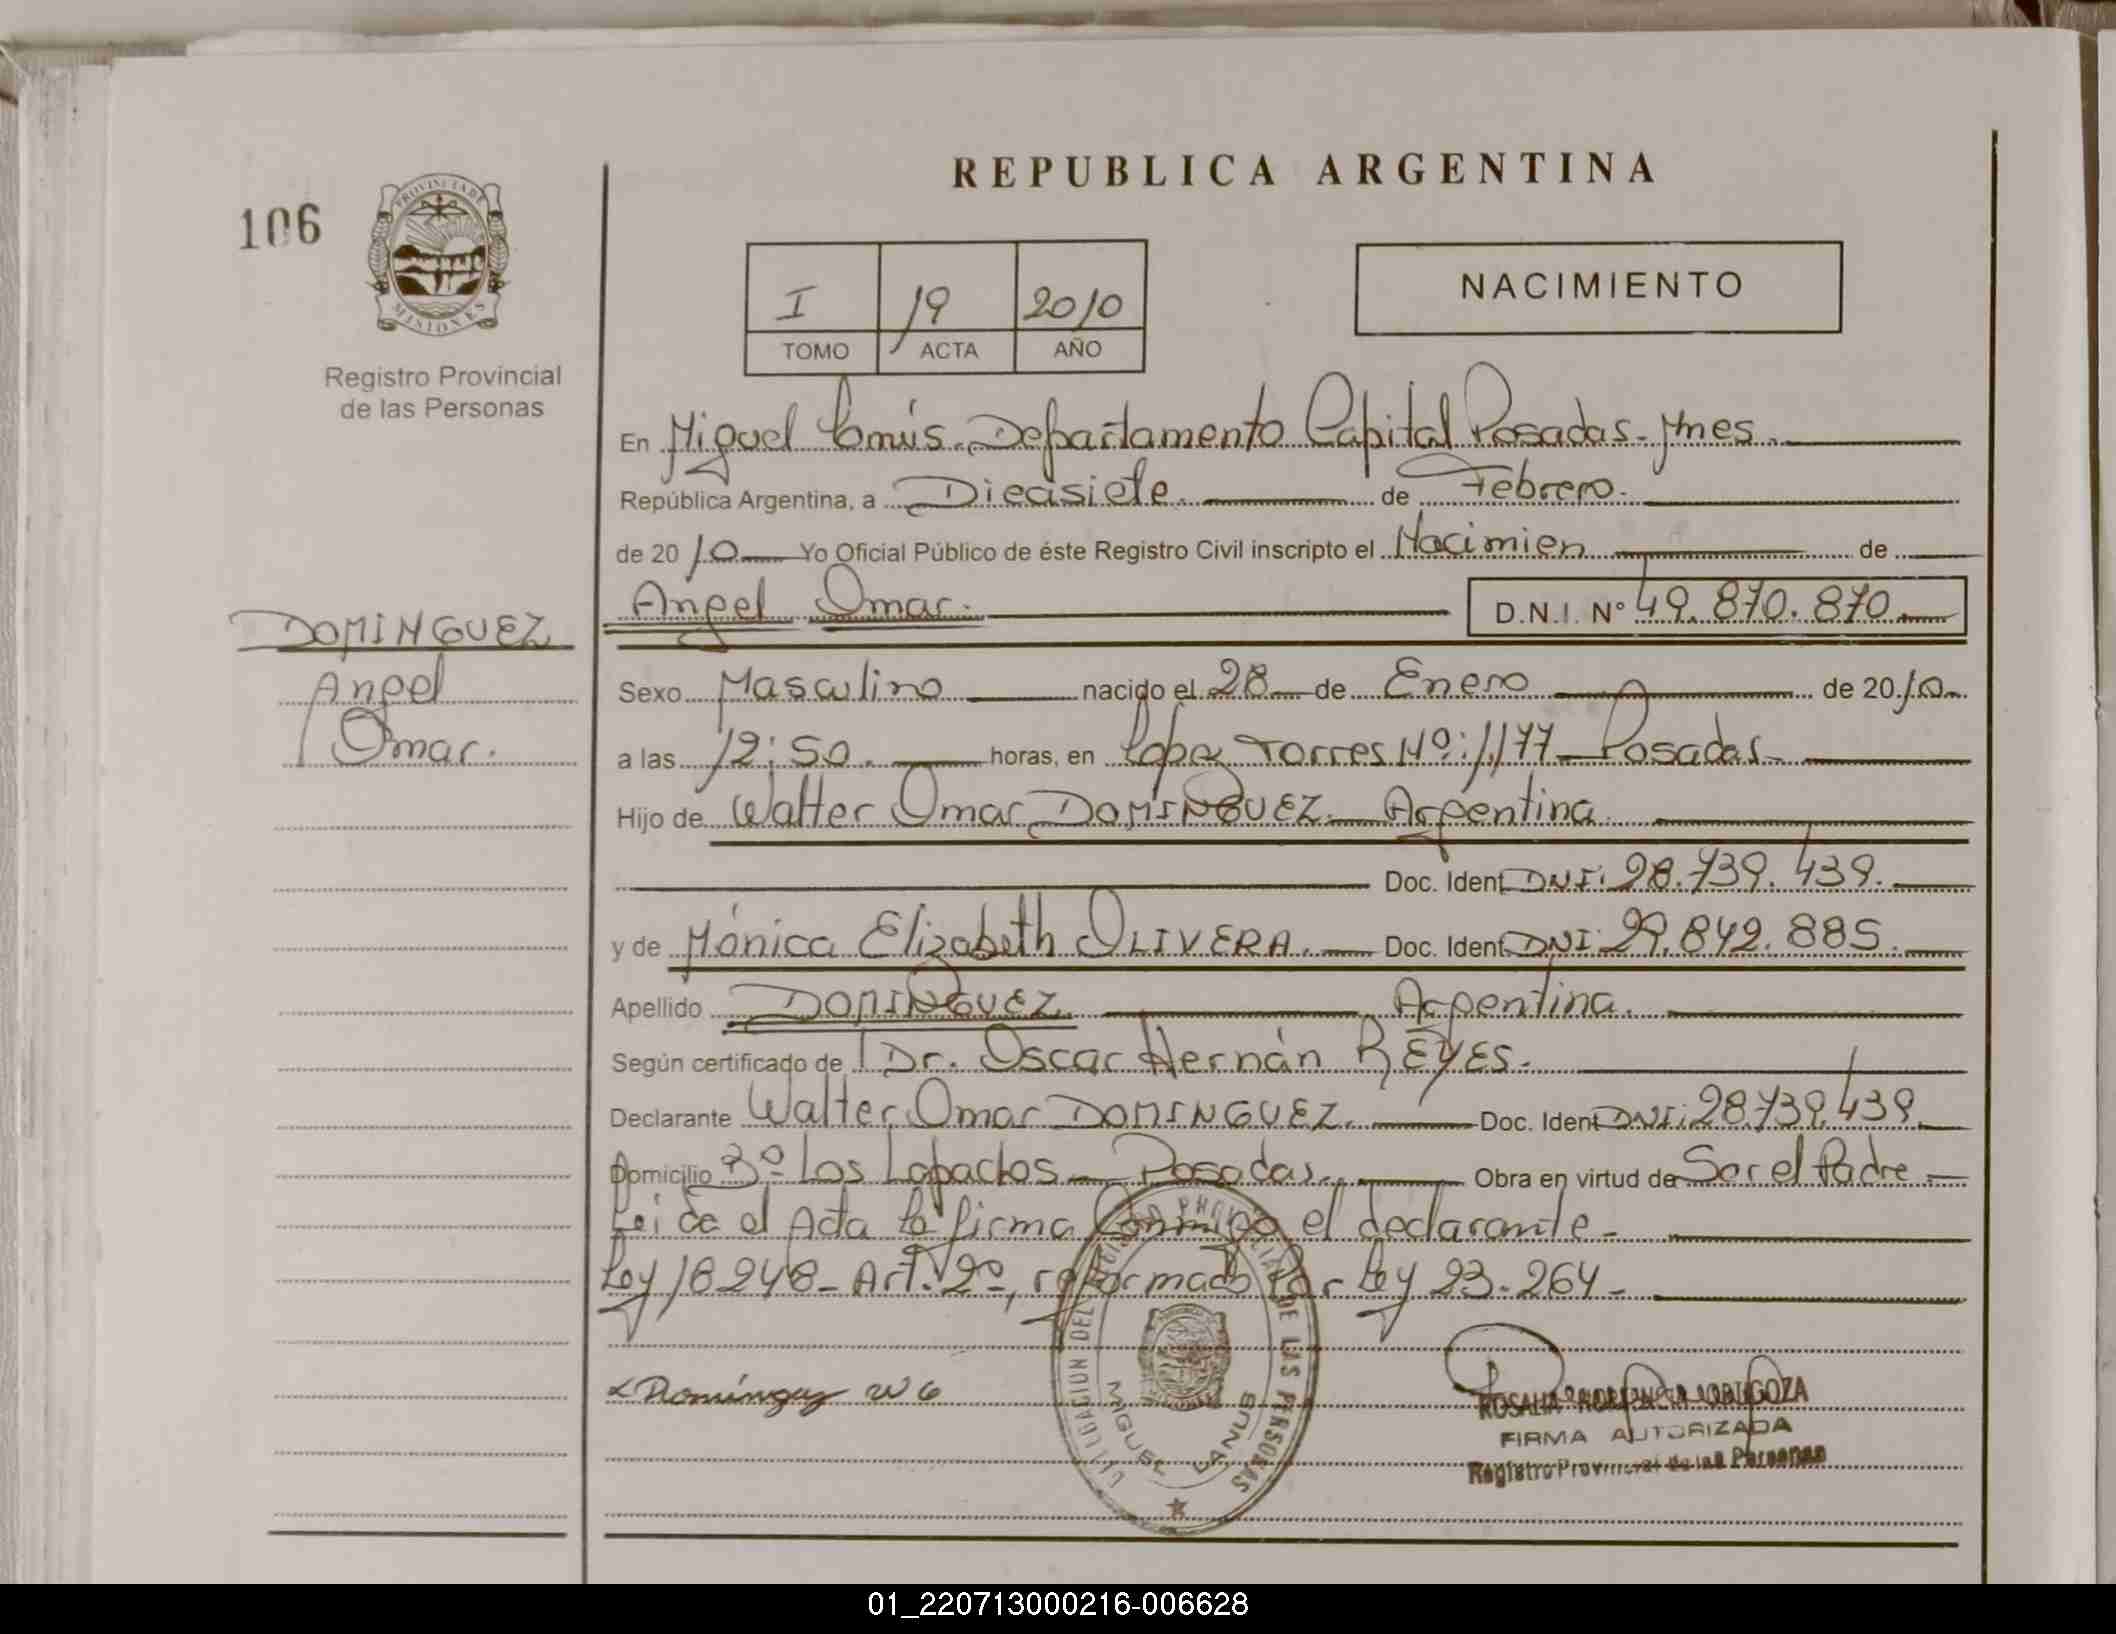 REPUBLICA ARGENTINA
106
PROVINCIA DE
MISIONES
Registro Provincial
de las Personas
NACIMIENTO
I 19 2010
TOMO ACTA AÑO
En Miguel Lanús. Departamento Capital Posadas - Mnes.
República Argentina, a Diecisiete. de Febrero.
de 20 10 Yo Oficial Público de éste Registro Civil inscripto el Nacimien de
Angel Omar. D.N.I. Nº 49.870.870
DOMINGUEZ
Angel
Omar.
Sexo Masculino nacido el 28 de Enero de 20 10
a las 12:50. horas, en Lopez Torres Nº: 1.177 - Posadas
Hijo de Walter Omar DOMINGUEZ - Argentina
Doc. Ident DNI: 28.739.439.
y de Mónica Elizabeth OLIVERA. Doc. Ident DNI: 29.842.885.
Apellido DOMINGUEZ Argentina.
Según certificado de Dr. Oscar Hernán REYES.
Declarante Walter Omar DOMINGUEZ. Doc. Ident DNI: 28.739.439.
Domicilio Bº Los Lapachos - Posadas. Obra en virtud de Ser el Padre -
Leída el Acta la firma Conmigo el declarante -
Ley 18248 - Art. 2º, reformado Por Ley 23.264 -
Dominguez W O
DELEGACION DEL REGISTRO PROVINCIAL DE LAS PERSONAS
MIGUEL LANUS
ROSALIA
FIRMA AUTORIZADA
Registro Provincial de las Personas
01_220713000216-006628